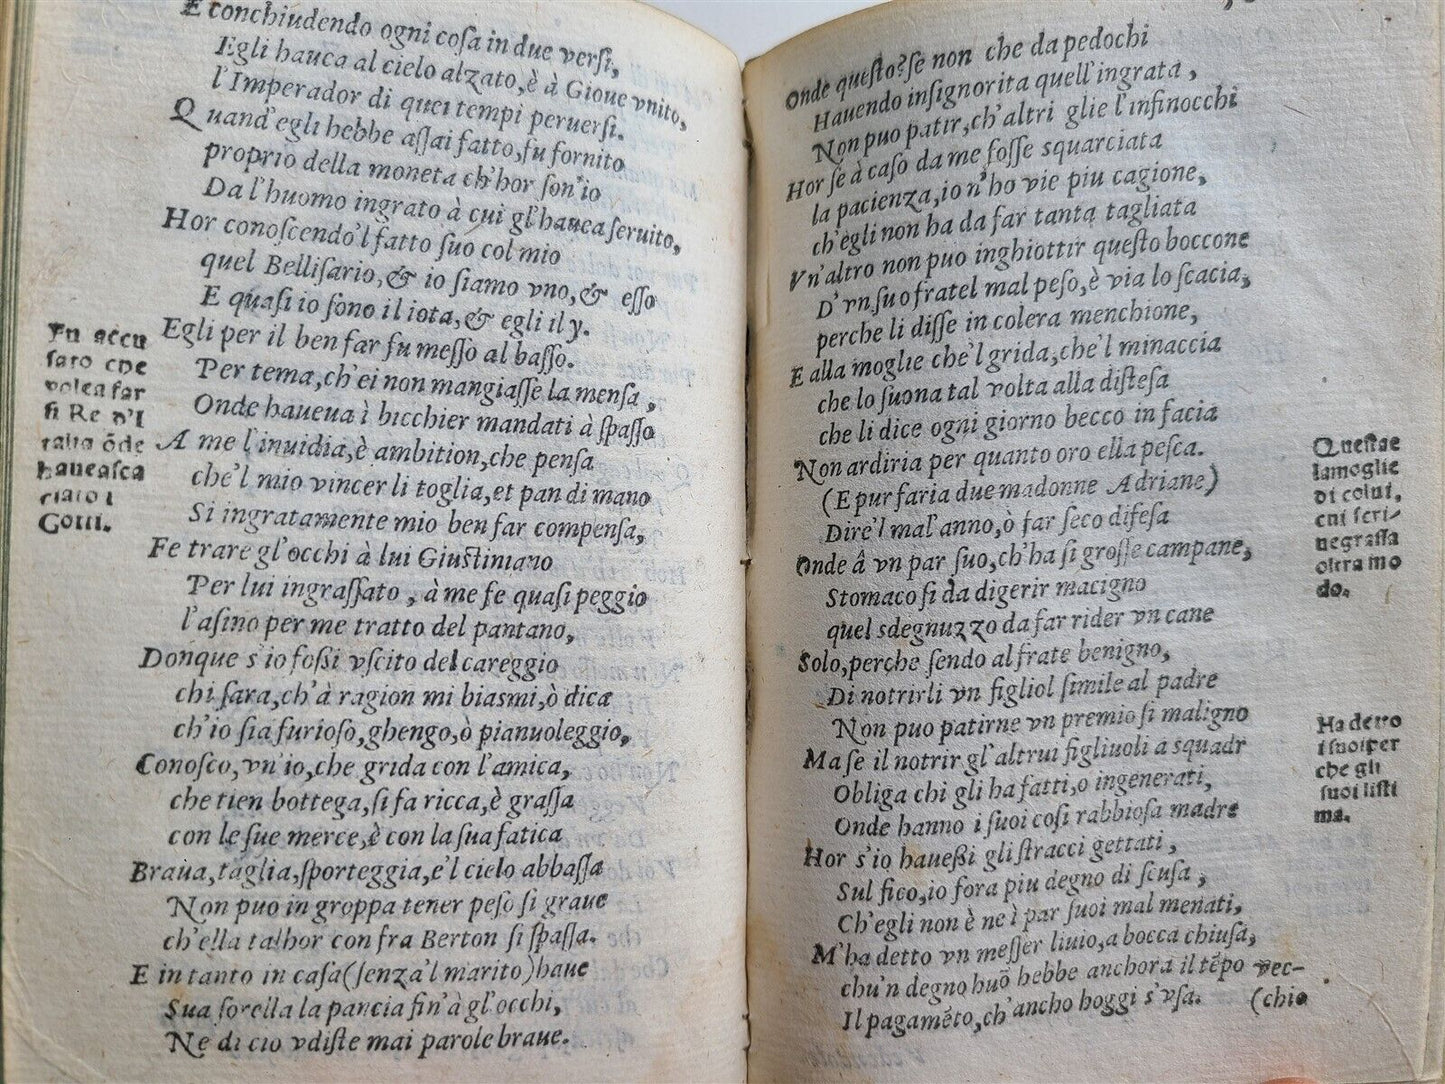 E conchiudendo ogni cosa in due versi,
Egli hauea al cielo alzato, è à Gioue vnito,
l'Imperador di quei tempi peruersi.
Quand'egli hebbe assai fatto, fu fornito
proprio della moneta ch'hor son'io
Da l'huomo ingrato à cui gl'hauea seruito,
Hor conoscendo'l fatto suo col mio
quel Bellisario, & io siamo vno, & esso
E quasi io sono il iota, & egli il y.
Egli per il ben far fu messo al basso.
Per tema, ch'ei non mangiasse la mensa,
Onde haueua i bicchier mandati à spasso
A me l'inuidia, è ambition, che pensa
che'l mio vincer li toglia, et pan di mano
Si ingratamente mio ben far compensa,
Fe trare gl'occhi à lui Giustiniano
Per lui ingrassato, à me fe quasi peggio
l'asino per me tratto del pantano,
Donque s'io fossi vscito del careggio
chi sara, ch'à ragion mi biasmi, ò dica
ch'io sia furioso, ghengo, ò pianuoleggio,
Conosco, vn'io, che grida con l'amica,
che tien bottega, si fa ricca, è grassa
con le sue merce, è con la sua fatica
Braua, taglia, sporteggia, e'l cielo abbassa
Non puo in groppa tener peso si graue
ch'ella talhor con fra Berton si spassa.
E in tanto in casa (senza'l marito) haue
Sua sorella la pancia fin'à gl'occhi,
Ne di cio vdiste mai parole braue.
Fu accu
sato che
volea far
si Re d'I
talia õde
haueasca
ciato i
Gotti.
Onde questo? se non che da pedochi
Hauendo insignorita quell'ingrata,
Non puo patir, ch'altri glie l'infinocchi
Hor se à caso da me fosse squarciata
la pacienza, io n'ho vie piu cagione,
ch'egli non ha da far tanta tagliata
Vn'altro non puo inghiottir questo boccone
D'vn suo fratel mal peso, è via lo scacia,
perche li disse in colera menchione,
E alla moglie che'l grida, che'l minaccia
che lo suona tal volta alla distesa
che li dice ogni giorno becco in facia
Non ardiria per quanto oro ella pesca.
(E pur faria due madonne Adriane)
Dire'l mal'anno, ò far seco difesa
Onde â vn par suo, ch'ha si grosse campane,
Stomaco si da digerir macigno
quel sdegnuzzo da far rider vn cane
Solo, perche sendo al frate benigno,
Di notrirli vn figliol simile al padre
Non puo patirne vn premio si maligno
Ma se il notrir gl'altrui figliuoli a squadr
Obliga chi gli ha fatti, o ingenerati,
Onde hanno i suoi cosi rabbiosa madre
Hor s'io hauessi gli stracci gettati,
Sul fico, io fora piu degno di scusa,
Ch'egli non è ne i par suoi mal menati,
M'ha detto vn messer liuio, a bocca chiusa,
chu'n degno huõ hebbe anchora il tẽpo vec-
Il pagamẽto, ch'ancho hoggi s'vsa. (chio
Questae
lamoglie
di colui,
cui scri-
negrassa
oltra mo
do.
Ha detto
i suoi per
che gli
suoi listi
ma.